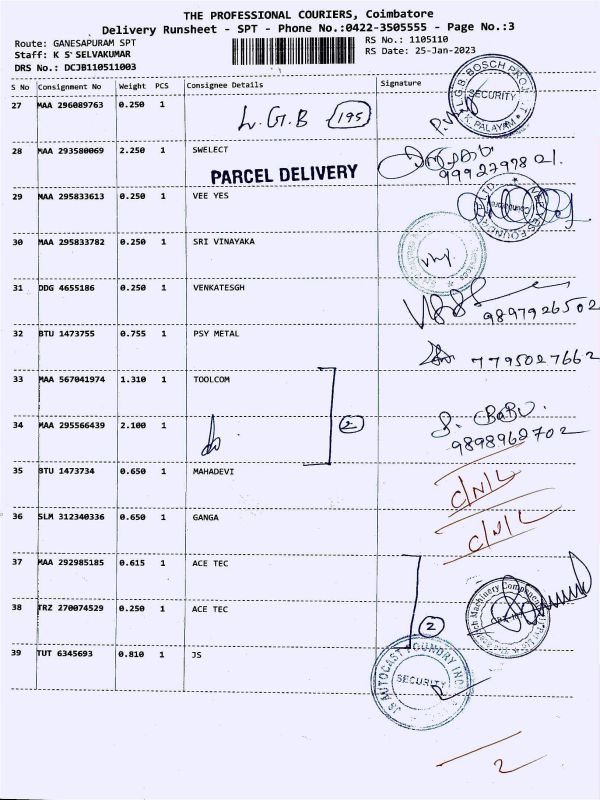 THE PROFESSIONAL COURIERS, Coimbatore
Delivery Runsheet - SPT - Phone No.:0422-3505555 - Page No.:3
Route: GANESAPURAM SPT RS No.: 1105110
Staff: K S SELVAKUMAR RS Date: 25-Jan-2023
DRS No.: DCJB110511003
S No Consignment No Weight PCS Consignee Details Signature
27 MAA 296089763 0.250 1 L.G.B 195
L.G.B. BOSCH PRO SECURITY K. PALAYAM
28 MAA 293580069 2.250 1 SWELECT
9992797821.
PARCEL DELIVERY
29 MAA 295833613 0.250 1 VEE YES
Coimbatore
30 MAA 295833782 0.250 1 SRI VINAYAKA
31 DDG 4655186 0.250 1 VENKATESGH
9897926502
32 BTU 1473755 0.755 1 PSY METAL 7795027662
33 MAA 567041974 1.310 1 TOOLCOM
2
34 MAA 295566439 2.100 1 S. BABU.
9898962702
35 BTU 1473734 0.650 1 MAHADEVI C/N/L
36 SLM 312340336 0.650 1 GANGA C/N/L
37 MAA 292985185 0.615 1 ACE TEC
Machinery Components
38 TRZ 270074529 0.250 1 ACE TEC
2
39 TUT 6345693 0.810 1 JS
JS AUTOCAST FOUNDRY INDIA SECURITY
2